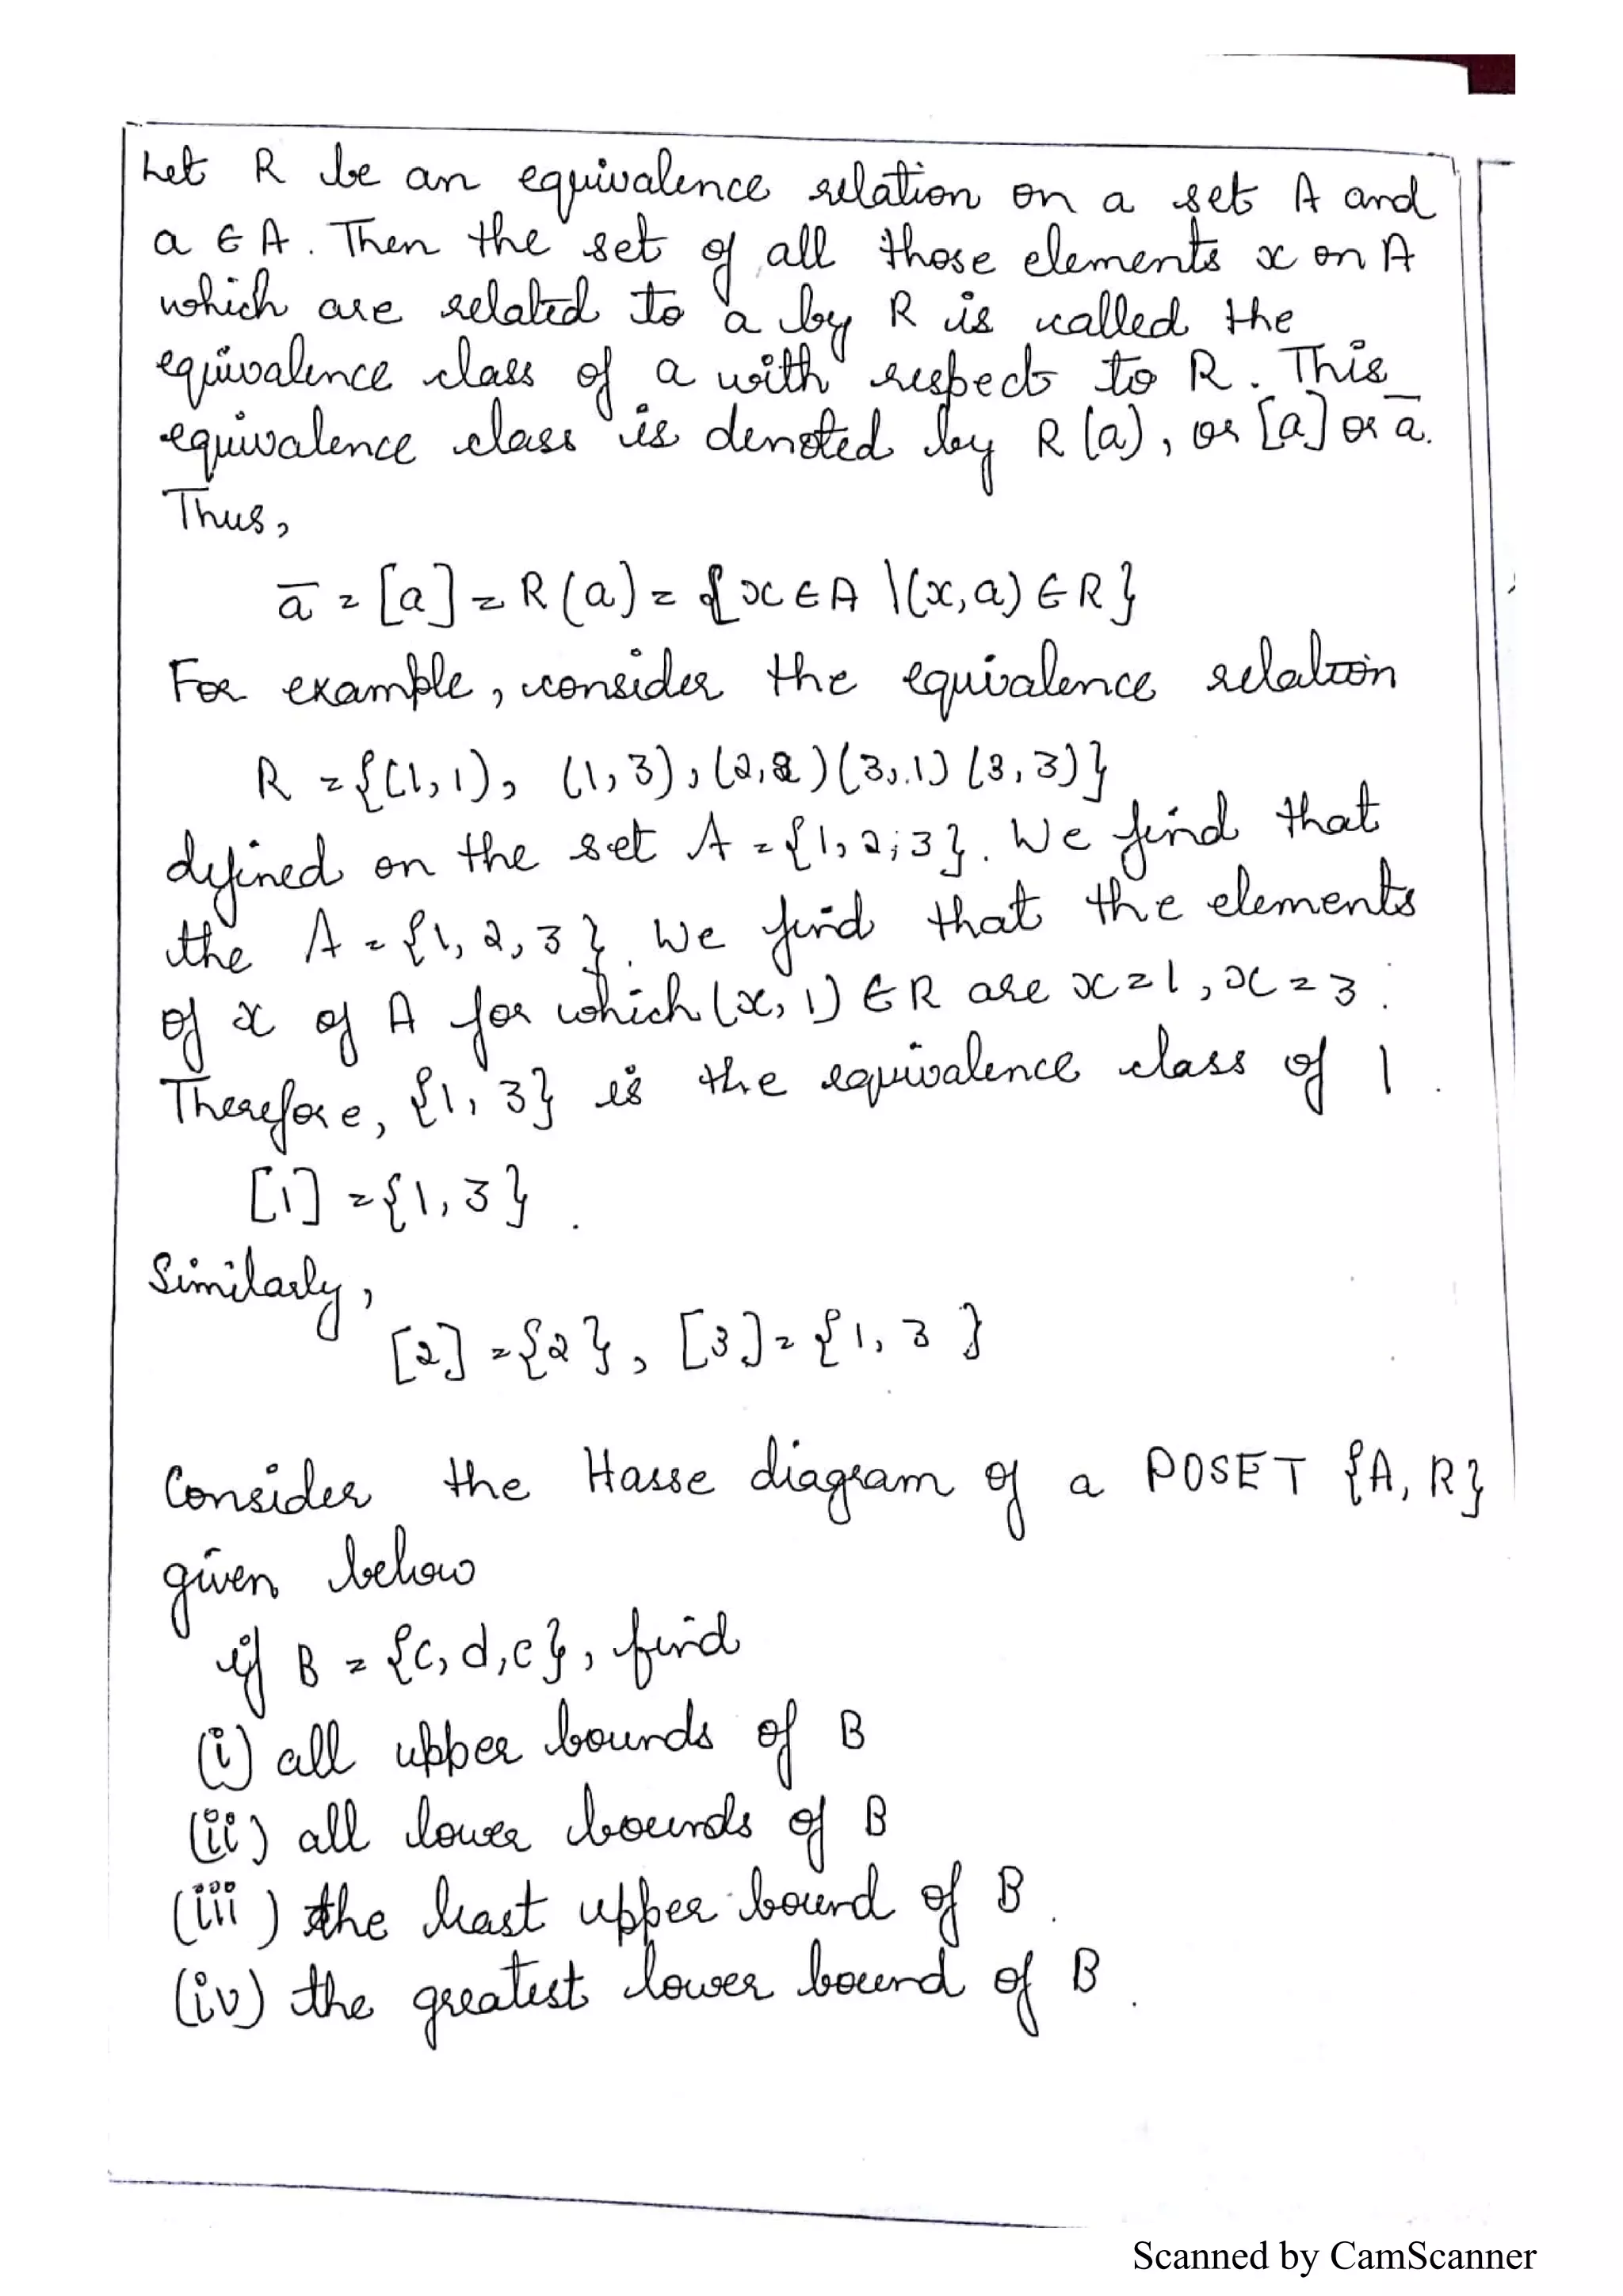 Let R be an equivalence relation on a set A and
a ∈ A. Then the set of all those elements x on A
which are related to a by R is called the
equivalence class of a with respect to R. This
equivalence class is denoted by R(a), or [a] or a̅.
Thus,
a̅ = [a] = R(a) = {x ∈ A \(x,a) ∈ R}
For example, consider the equivalence relation
R = {(1,1), (1,3), (2,2)(3,1)(3,3)}
defined on the set A = {1,2,3}. We find that
the A = {1,2,3}. We find that the elements
of x of A for which (x,1) ∈ R are x=1, x=3.
Therefore, {1,3} is the equivalence class of 1.
[1] = {1,3}.
Similarly,
[2] = {2}, [3] = {1,3}
Consider the Hasse diagram of a POSET {A,R}
given below
if B = {c,d,c}, find
(i) all upper bounds of B
(ii) all lower bounds of B
(iii) the least upper bound of B.
(iv) the greatest lower bound of B.
Scanned by CamScanner